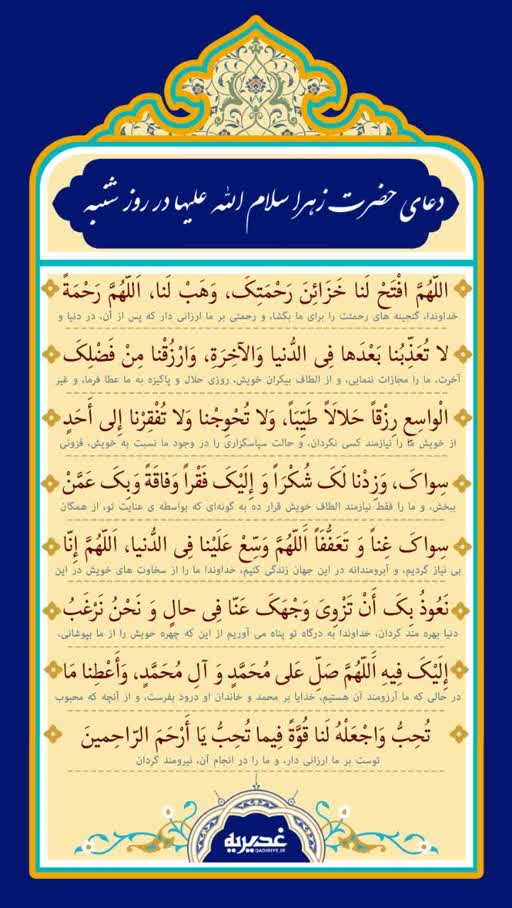 دعای حضرت زهرا سلام الله علیها در روز شنبه
اللّهُمَّ افْتَحْ لَنا خَزائِنَ رَحْمَتِکَ، وَهَبْ لَنا، اَللّهُمَّ رَحْمَةً
خداوندا، گنجینه های رحمتت را برای ما بگشا، و رحمتی بر ما ارزانی دار که پس از آن، در دنیا و
لا تُعَذِّبُنا بَعْدَها فِی الدُّنیا وَالآخِرَةِ، وَارْزُقْنا مِنْ فَضْلِکَ
آخرت، ما را مجازات ننمایی، و از الطاف بیکران خویش، روزی حلال و پاکیزه به ما عطا فرما، و غیر
الْواسِعِ رِزْقاً حَلالَاً طَیِّبَاً، وَلا تُحْوِجْنا وَلا تُفْقِرْنا إلی أَحَدٍ
از خویش ما را نیازمند کسی نگردان، و حالت سپاسگزاری را در وجود ما نسبت به خویش، فزونی
سِواکَ، وَزِدْنا لَکَ شُکْرَاً وَ إلَیْکَ فَقْراً وَفاقَةً وَبِکَ عَمَّنْ
ببخش، و ما را فقط نیازمند الطاف خویش قرار ده به گونه‌ای که بواسطه ی عنایت تو، از همگان
سِواکَ غِناً وَ تَعَفُّفَاً اَللّهُمَّ وَسِّعْ عَلَیْنا فِی الدُّنیا، اَللّهُمَّ إنّا
بی نیاز گردیم، و آبرومندانه در این جهان زندگی کنیم، خداوندا ما را از سخاوت های خویش در این
نَعُوذُ بِکَ أَنْ تَزْوِیَ وَجْهَکَ عَنّا فِی حالٍ وَ نَحْنُ نَرْغَبُ
دنیا بهره مند گردان، خداوندا به درگاه تو پناه می آوریم از این که چهره خویش را از ما بپوشانی،
إلَیْکَ فِیهِ اَللّهُمَّ صَلِّ عَلی مُحَمَّدٍ وَ آلِ مُحَمَّدٍ، وَأَعْطِنا مَا
در حالی که ما آرزومند آن هستیم، خدایا بر محمد و خاندان او درود بفرست، و از آنچه که محبوب
تُحِبُّ وَاجْعَلْهُ لَنا قُوَّةً فِیما تُحِبُّ یَا أَرْحَمَ الرّاحِمینَ
توست بر ما ارزانی دار، و ما را در انجام آن، نیرومند گردان
غدیریه
QADIRIYE.IR